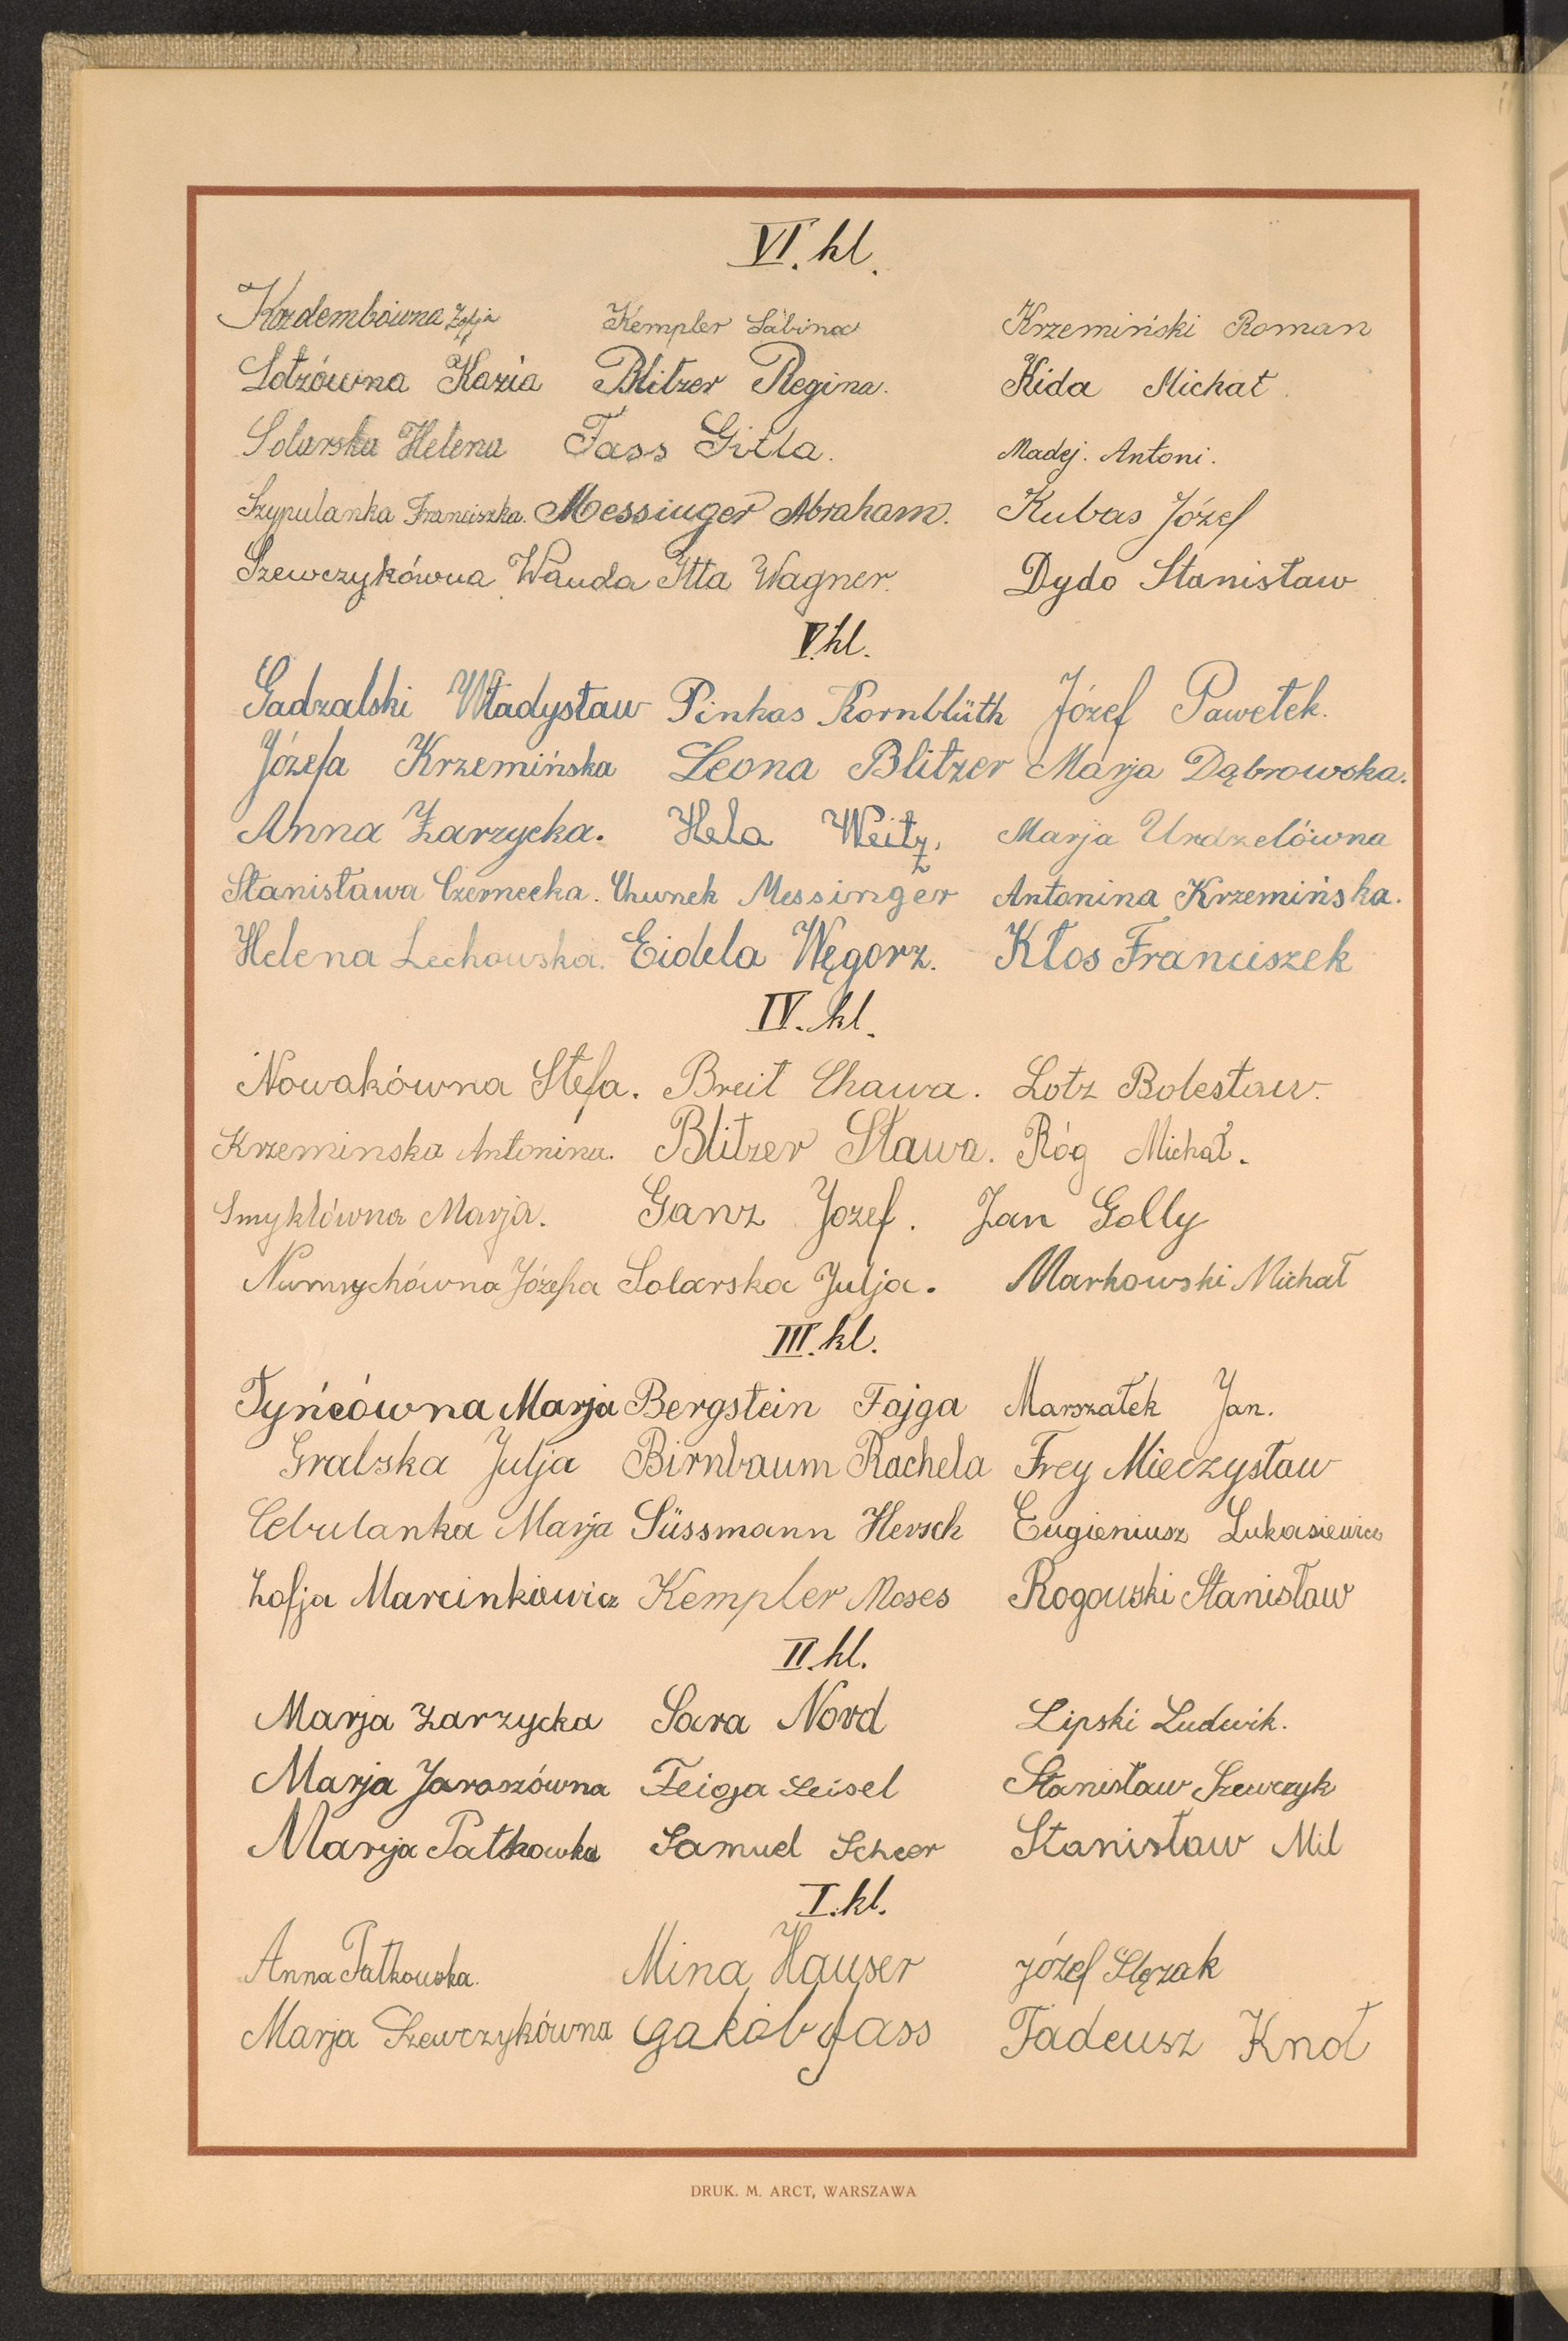 VI. kl.
Kozdembówna Zofja Kempler Sabina Krzemiński Roman
Lotzówna Kazia Blitzer Regina. Kida Michał.
Solarska Helena Fass Gitla. Madej. Antoni.
Szypulanka Franciszka. Messinger Abraham. Kubas Józef
Szewczykówna Wanda Itta Wagner. Dydo Stanisław
V. kl.
Gadzalski Władysław Pinkas Kornblüth Józef Pawełek.
Józefa Krzemińska Leona Blitzer Marja Dąbrowska.
Anna Zarzycka. Hela Weitz, Marja Urdzelówna
Stanisława Czernecka. Chunek Messinger Antonina Krzemińska.
Helena Lechowska. Eidela Węgorz. Kłos Franciszek
IV. kl.
Nowakówna Stefa. Breit Chawa. Lotz Bolesław.
Krzeminska Antonina. Blitzer Sława. Róg Michał.
Smykłówna Marja. Ganz Jozef. Jan Golly
Numrychówna Józefa Solarska Julja. Markowski Michał
III. kl.
Tyńcówna Marja Bergstein Fajga Marszałek Jan.
Gralska Julja Birnbaum Rachela Frey Mieczysław
Cebulanka Marja Süssmann Hersch Eugieniusz Lukasiewicz
Zofja Marcinkiewicz Kempler Moses Rogowski Stanisław
II. kl.
Marja Zarzycka Sara Nord Lipski Ludwik.
Marja Jaroszówna Feiga Leisel Stanisław Szewczyk
Marja Patkowka Samuel Scheer Stanisław Mil
I. kl.
Anna Patkowska. Mina Hauser Józef Ślęzak
Marja Szewczykówna Jakób Fass Tadeusz Knot
DRUK. M. ARCT, WARSZAWA